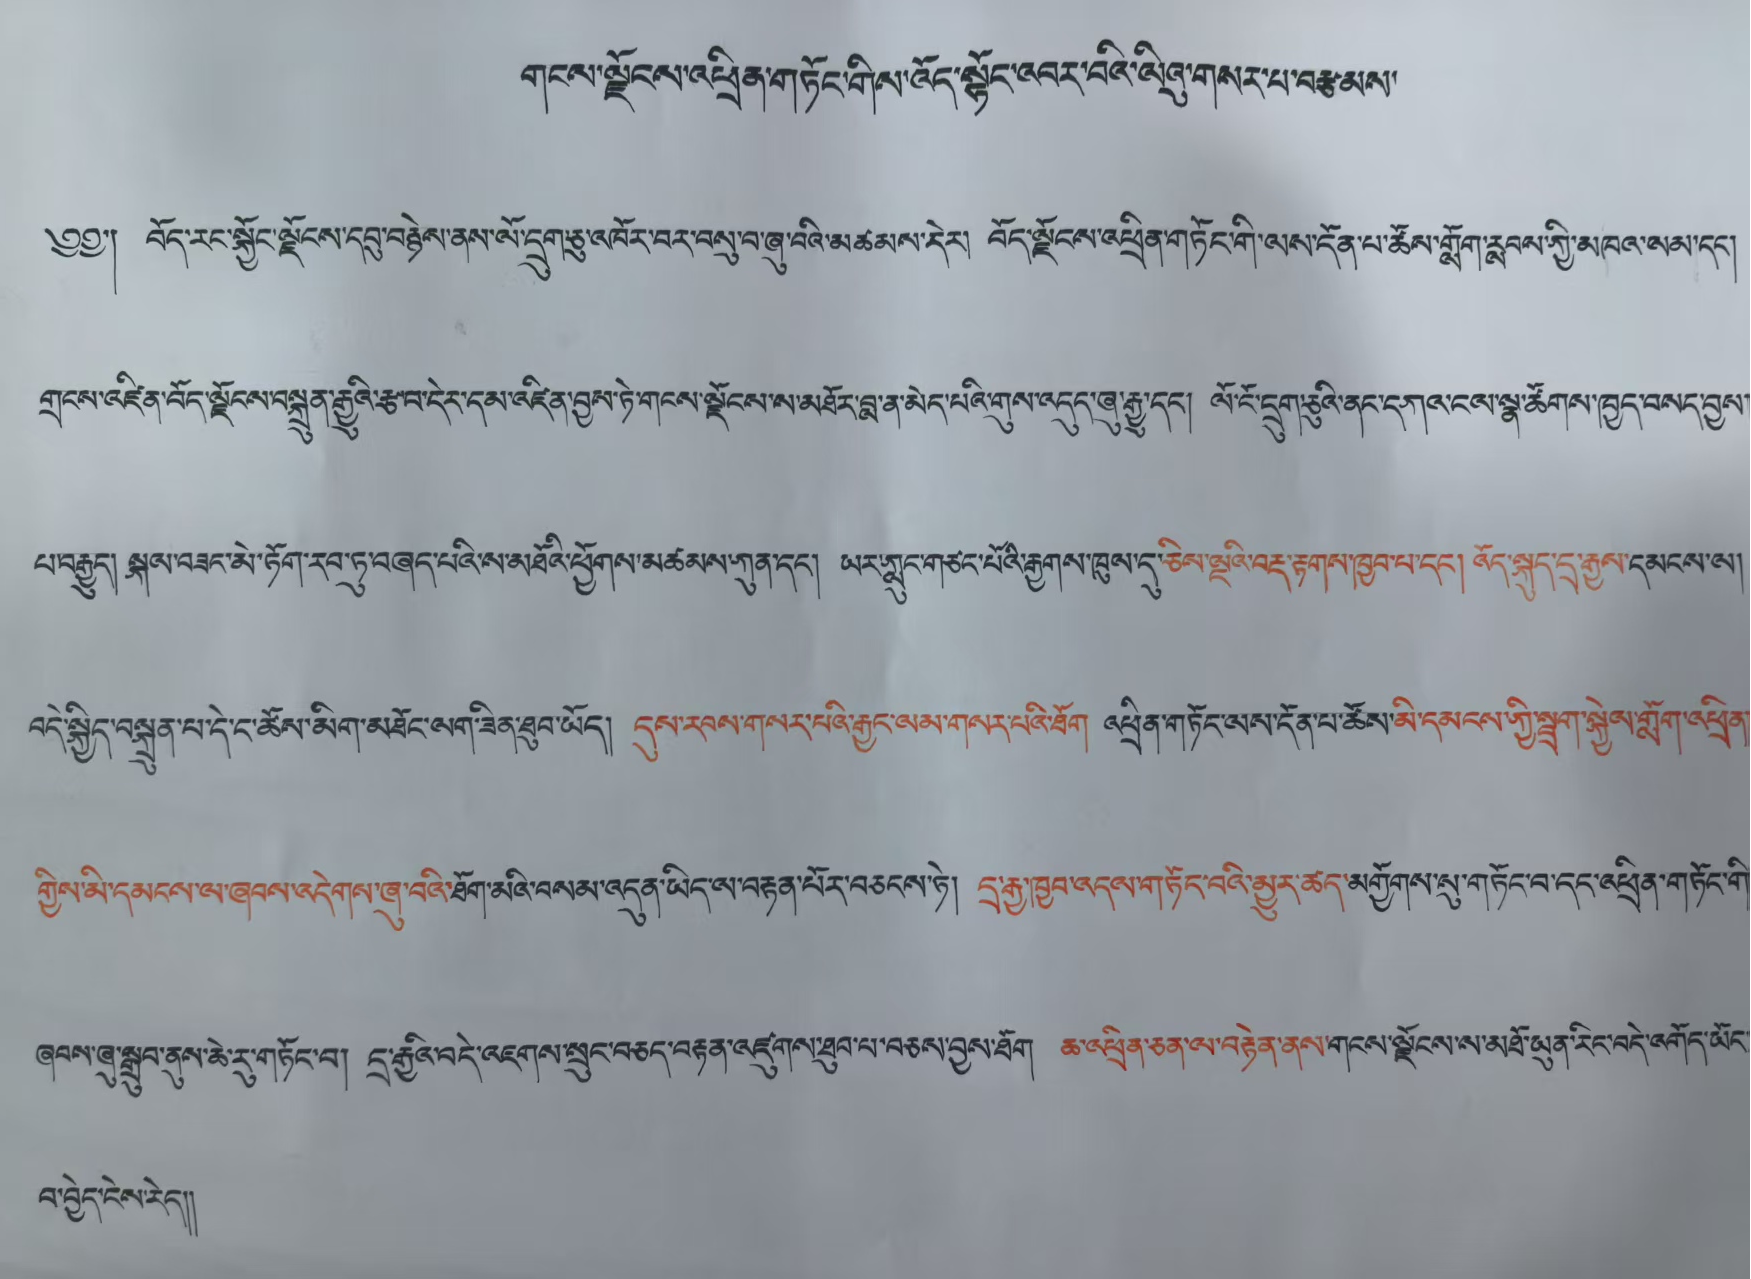 གངས་ལྗོངས་འཕྲིན་གཏོང་གིས་འོད་སྟོང་འབར་བའི་ལེའུ་གསར་པ་བརྩམས་
༄༅། །བོད་རང་སྐྱོང་ལྗོངས་དབུ་བརྙེས་ནས་ལོ་དྲུག་ཅུ་འཁོར་བར་བསུ་བ་ཞུ་བའི་མཚམས་དེར། བོད་ལྗོངས་འཕྲིན་གཏོང་གི་ལས་དོན་པ་ཚོས་གློག་རླབས་ཀྱི་མཁའ་ལམ་དང།
གྲངས་འཛིན་བོད་ལྗོངས་བསྐྲུན་རྒྱུའི་རྩ་བ་དེར་དམ་འཛིན་བྱས་ཏེ་གངས་ལྗོངས་ས་མཐོར་བླ་ན་མེད་པའི་གུས་འདུད་ཞུ་རྒྱུ་དང། ལོ་ངོ་དྲུག་ཅུའི་ནང་དཀའ་ངལ་སྣ་ཚོགས་ཁྱད་བསད་བྱས་
པ་བརྒྱུད། སྐལ་བཟང་མེ་ཏོག་རབ་ཏུ་བཞད་པའི་ས་མཐོའི་ཕྱོགས་མཚམས་ཀུན་དང། ཡར་ཀླུང་གཙང་པོའི་རྒྱགས་ཁུལ་དུ་ཅེས་སྔའི་བརྡ་རྟགས་ཁྱབ་པ་དང། འོད་སྐུད་དྲ་རྒྱས་དམངས་ལ།
བདེ་སྐྱིད་བསྐྲུན་པ་དེ་ང་ཚོས་མིག་མཐོང་ལག་ཟིན་ཐུབ་ཡོད། དུས་རབས་གསར་པའི་རྒྱང་ལམ་གསར་པའི་ཐོག འཕྲིན་གཏོང་ལས་དོན་པ་ཚོས་མི་དམངས་ཀྱི་གློག་སྐྱེལ་གློག་འཕྲིན་
གྱིས་མི་དམངས་ལ་ཞབས་འདེགས་ཞུ་བའི་ཐོག་མའི་བསམ་འདུན་ཡིད་ལ་བརྟན་པོར་བཅངས་ཏེ། དྲ་རྒྱ་ཁྱབ་འདལ་གཏོང་བའི་མྱུར་ཚད་མགྱོགས་སུ་གཏོང་བ་དང་འཕྲིན་གཏོང་གི་
ཞབས་ཞུ་སྒྲུབ་ནུས་ཆེ་རུ་གཏོང་བ། དྲ་རྒྱའི་བདེ་འཇགས་སྲུང་བཅད་བརྟན་འཛུགས་ཐུབ་པ་བཅས་བྱས་ཐོག ཆ་འཕྲིན་ཅན་ལ་བརྟེན་ནས་གངས་ལྗོངས་ས་མཐོ་ཡུན་རིང་བདེ་འགོད་ཡོང་
བ་བྱེད་ངེས་རེད།།